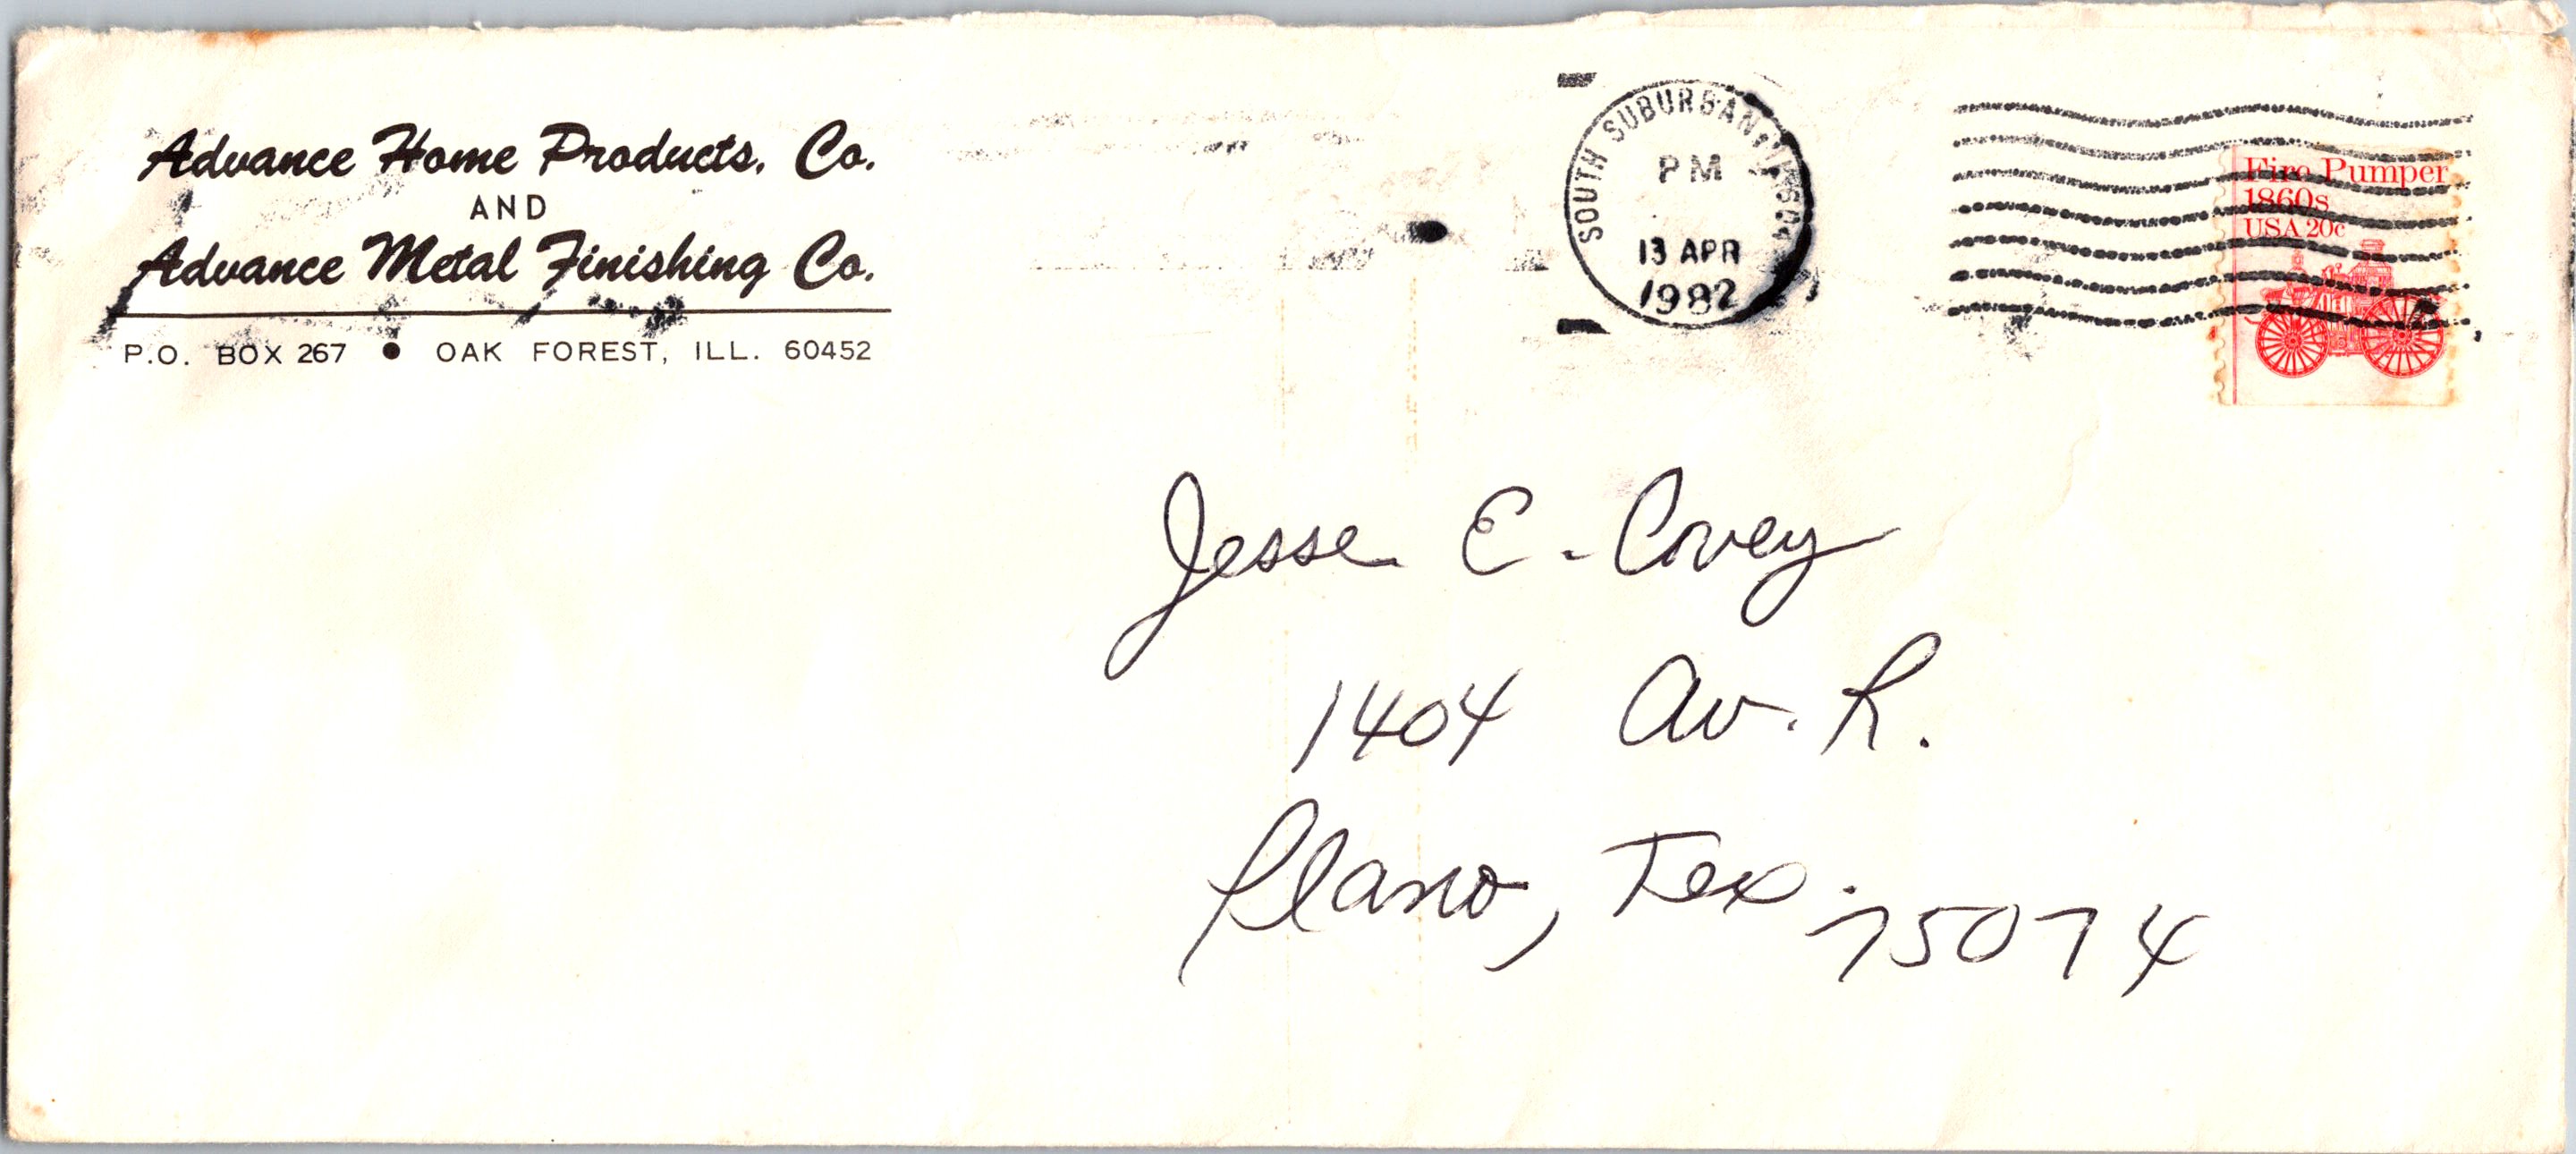 Advance Home Products, Co.
AND
Advance Metal Finishing Co.
P.O. BOX 267 • OAK FOREST, ILL. 60452
SOUTH SUBURBAN, IL 604
PM
13 APR
1982
Fire Pumper
1860s
USA 20c
Jesse E. Covey
1404 Av. R.
Plano, Tex. 75074